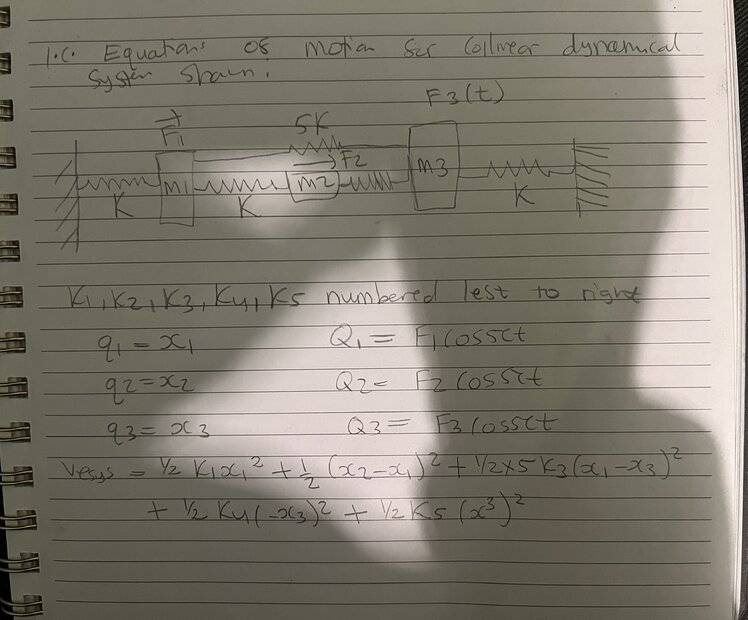 1.C. Equations of motion for Collinear dynamical
System Shown.
F3(t)
F1
5K
F2
m1
m2
m3
K
K
K
K1, K2, K3, K4, K5 numbered left to right
q1 = x1 Q1 = F1 cosΩt
q2 = x2 Q2 = F2 cosΩt
q3 = x3 Q3 = F3 cosΩt
Vesys = 1/2 K1x1² + 1/2 (x2-x1)² + 1/2×5 K3(x1-x3)²
+ 1/2 K4(-x3)² + 1/2 K5 (x³)²